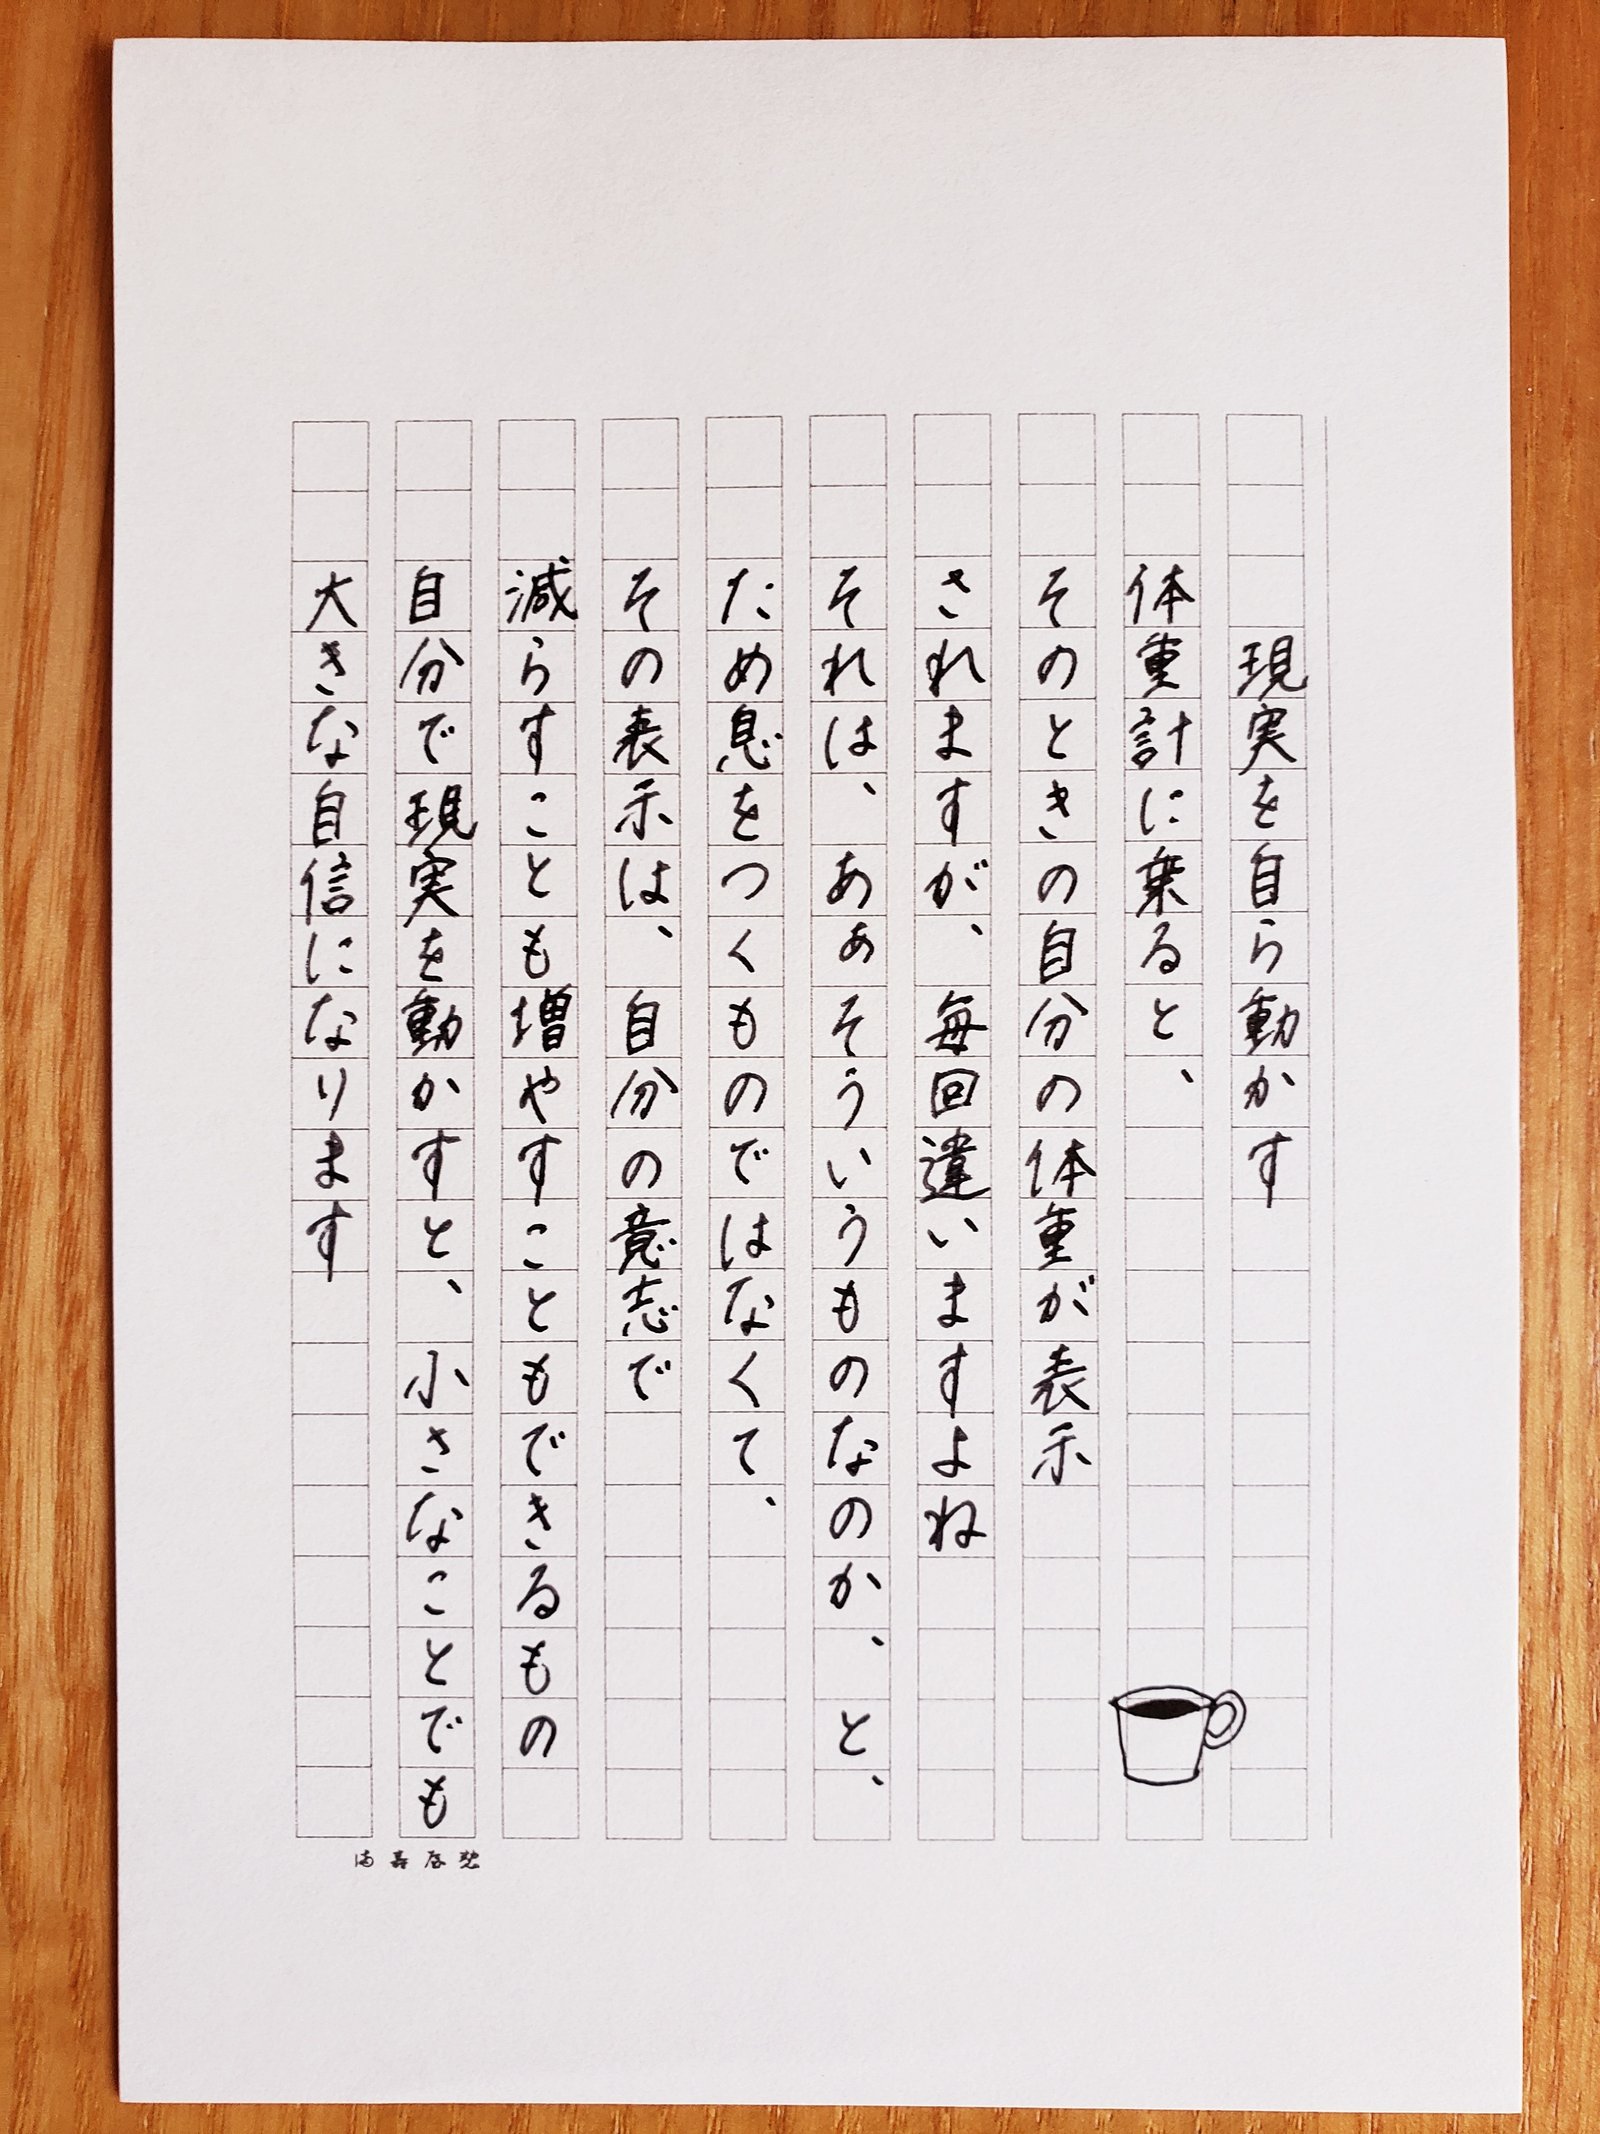 現実を自ら動かす
体重計に乗ると、
そのときの自分の体重が表示
されますが、毎回違いますよね
それは、あぁそういうものなのか、と、
ため息をつくものではなくて、
その表示は、自分の意志で
減らすことも増やすこともできるもの
自分で現実を動かすと、小さなことでも
大きな自信になります